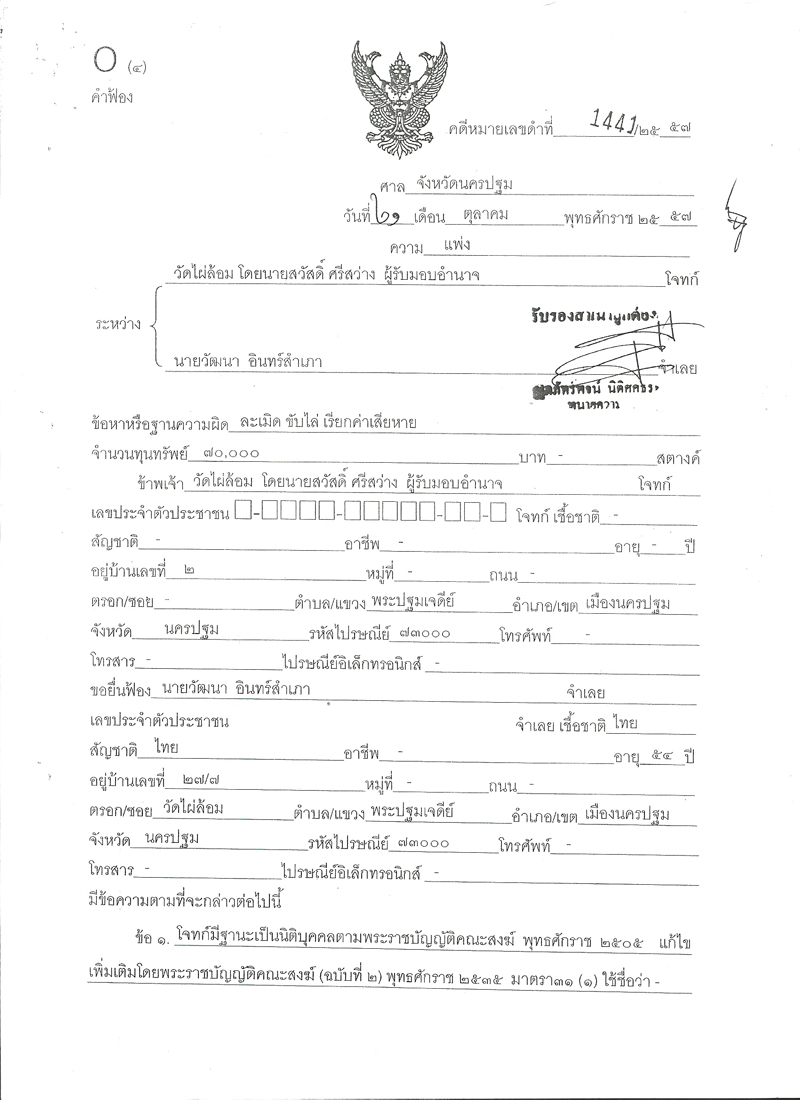 O (๔)
คำฟ้อง
คดีหมายเลขดำที่ 1441/๒๕ ๕๗
ศาล จังหวัดนครปฐม
วันที่ ๒๑ เดือน ตุลาคม พุทธศักราช ๒๕ ๕๗
ความ แพ่ง
วัดไผ่ล้อม โดยนายสวัสดิ์ ศรีสว่าง ผู้รับมอบอำนาจ โจทก์
ระหว่าง
รับรองสำเนาถูกต้อง
นายวัฒนา อินทร์สำเภา จำเลย
ทนายความ
ข้อหาหรือฐานความผิด ละเมิด ขับไล่ เรียกค่าเสียหาย
จำนวนทุนทรัพย์ ๗๐,๐๐๐ บาท - สตางค์
ข้าพเจ้า วัดไผ่ล้อม โดยนายสวัสดิ์ ศรีสว่าง ผู้รับมอบอำนาจ โจทก์
เลขประจำตัวประชาชน โจทก์ เชื้อชาติ -
สัญชาติ - อาชีพ - อายุ - ปี
อยู่บ้านเลขที่ ๒ หมู่ที่ - ถนน -
ตรอก/ซอย - ตำบล/แขวง พระปฐมเจดีย์ อำเภอ/เขต เมืองนครปฐม
จังหวัด นครปฐม รหัสไปรษณีย์ ๗๓๐๐๐ โทรศัพท์ -
โทรสาร - ไปรษณีย์อิเล็กทรอนิกส์ -
ขอยื่นฟ้อง นายวัฒนา อินทร์สำเภา จำเลย
เลขประจำตัวประชาชน จำเลย เชื้อชาติ ไทย
สัญชาติ ไทย อาชีพ - อายุ ๕๔ ปี
อยู่บ้านเลขที่ ๒๗/๗ หมู่ที่ - ถนน -
ตรอก/ซอย วัดไผ่ล้อม ตำบล/แขวง พระปฐมเจดีย์ อำเภอ/เขต เมืองนครปฐม
จังหวัด นครปฐม รหัสไปรษณีย์ ๗๓๐๐๐ โทรศัพท์ -
โทรสาร - ไปรษณีย์อิเล็กทรอนิกส์ -
มีข้อความตามที่จะกล่าวต่อไปนี้
ข้อ ๑. โจทก์มีฐานะเป็นนิติบุคคลตามพระราชบัญญัติคณะสงฆ์ พุทธศักราช ๒๕๐๕ แก้ไข
เพิ่มเติมโดยพระราชบัญญัติคณะสงฆ์ (ฉบับที่ ๒) พุทธศักราช ๒๕๓๕ มาตรา๓๑ (๑) ใช้ชื่อว่า -